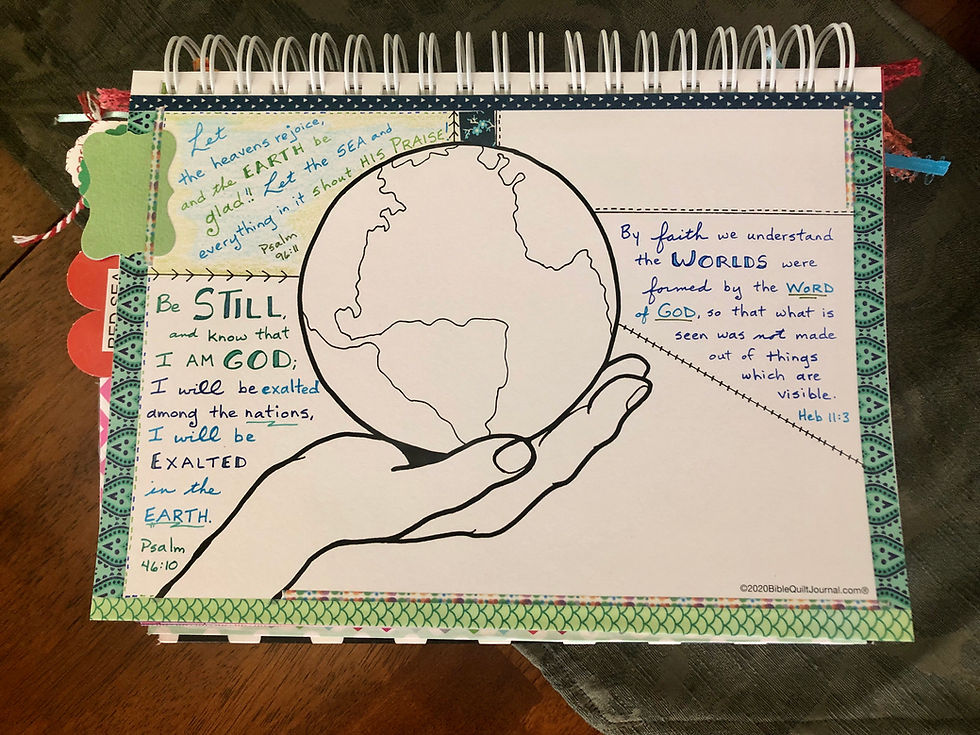 Let
the heavens rejoice,
and the EARTH be
glad!! Let the SEA and
everything in it shout HIS PRAISE!
Psalm
96:11
Be STILL,
and know that
I AM GOD;
I will be exalted
among the nations,
I will be
EXALTED
in the
EARTH.
Psalm
46:10
By faith we understand
the WORLDS were
formed by the WORD
of GOD, so that what is
seen was not made
out of things
which are
visible.
Heb 11:3
RED SEA
©2020BibleQuiltJournal.com®